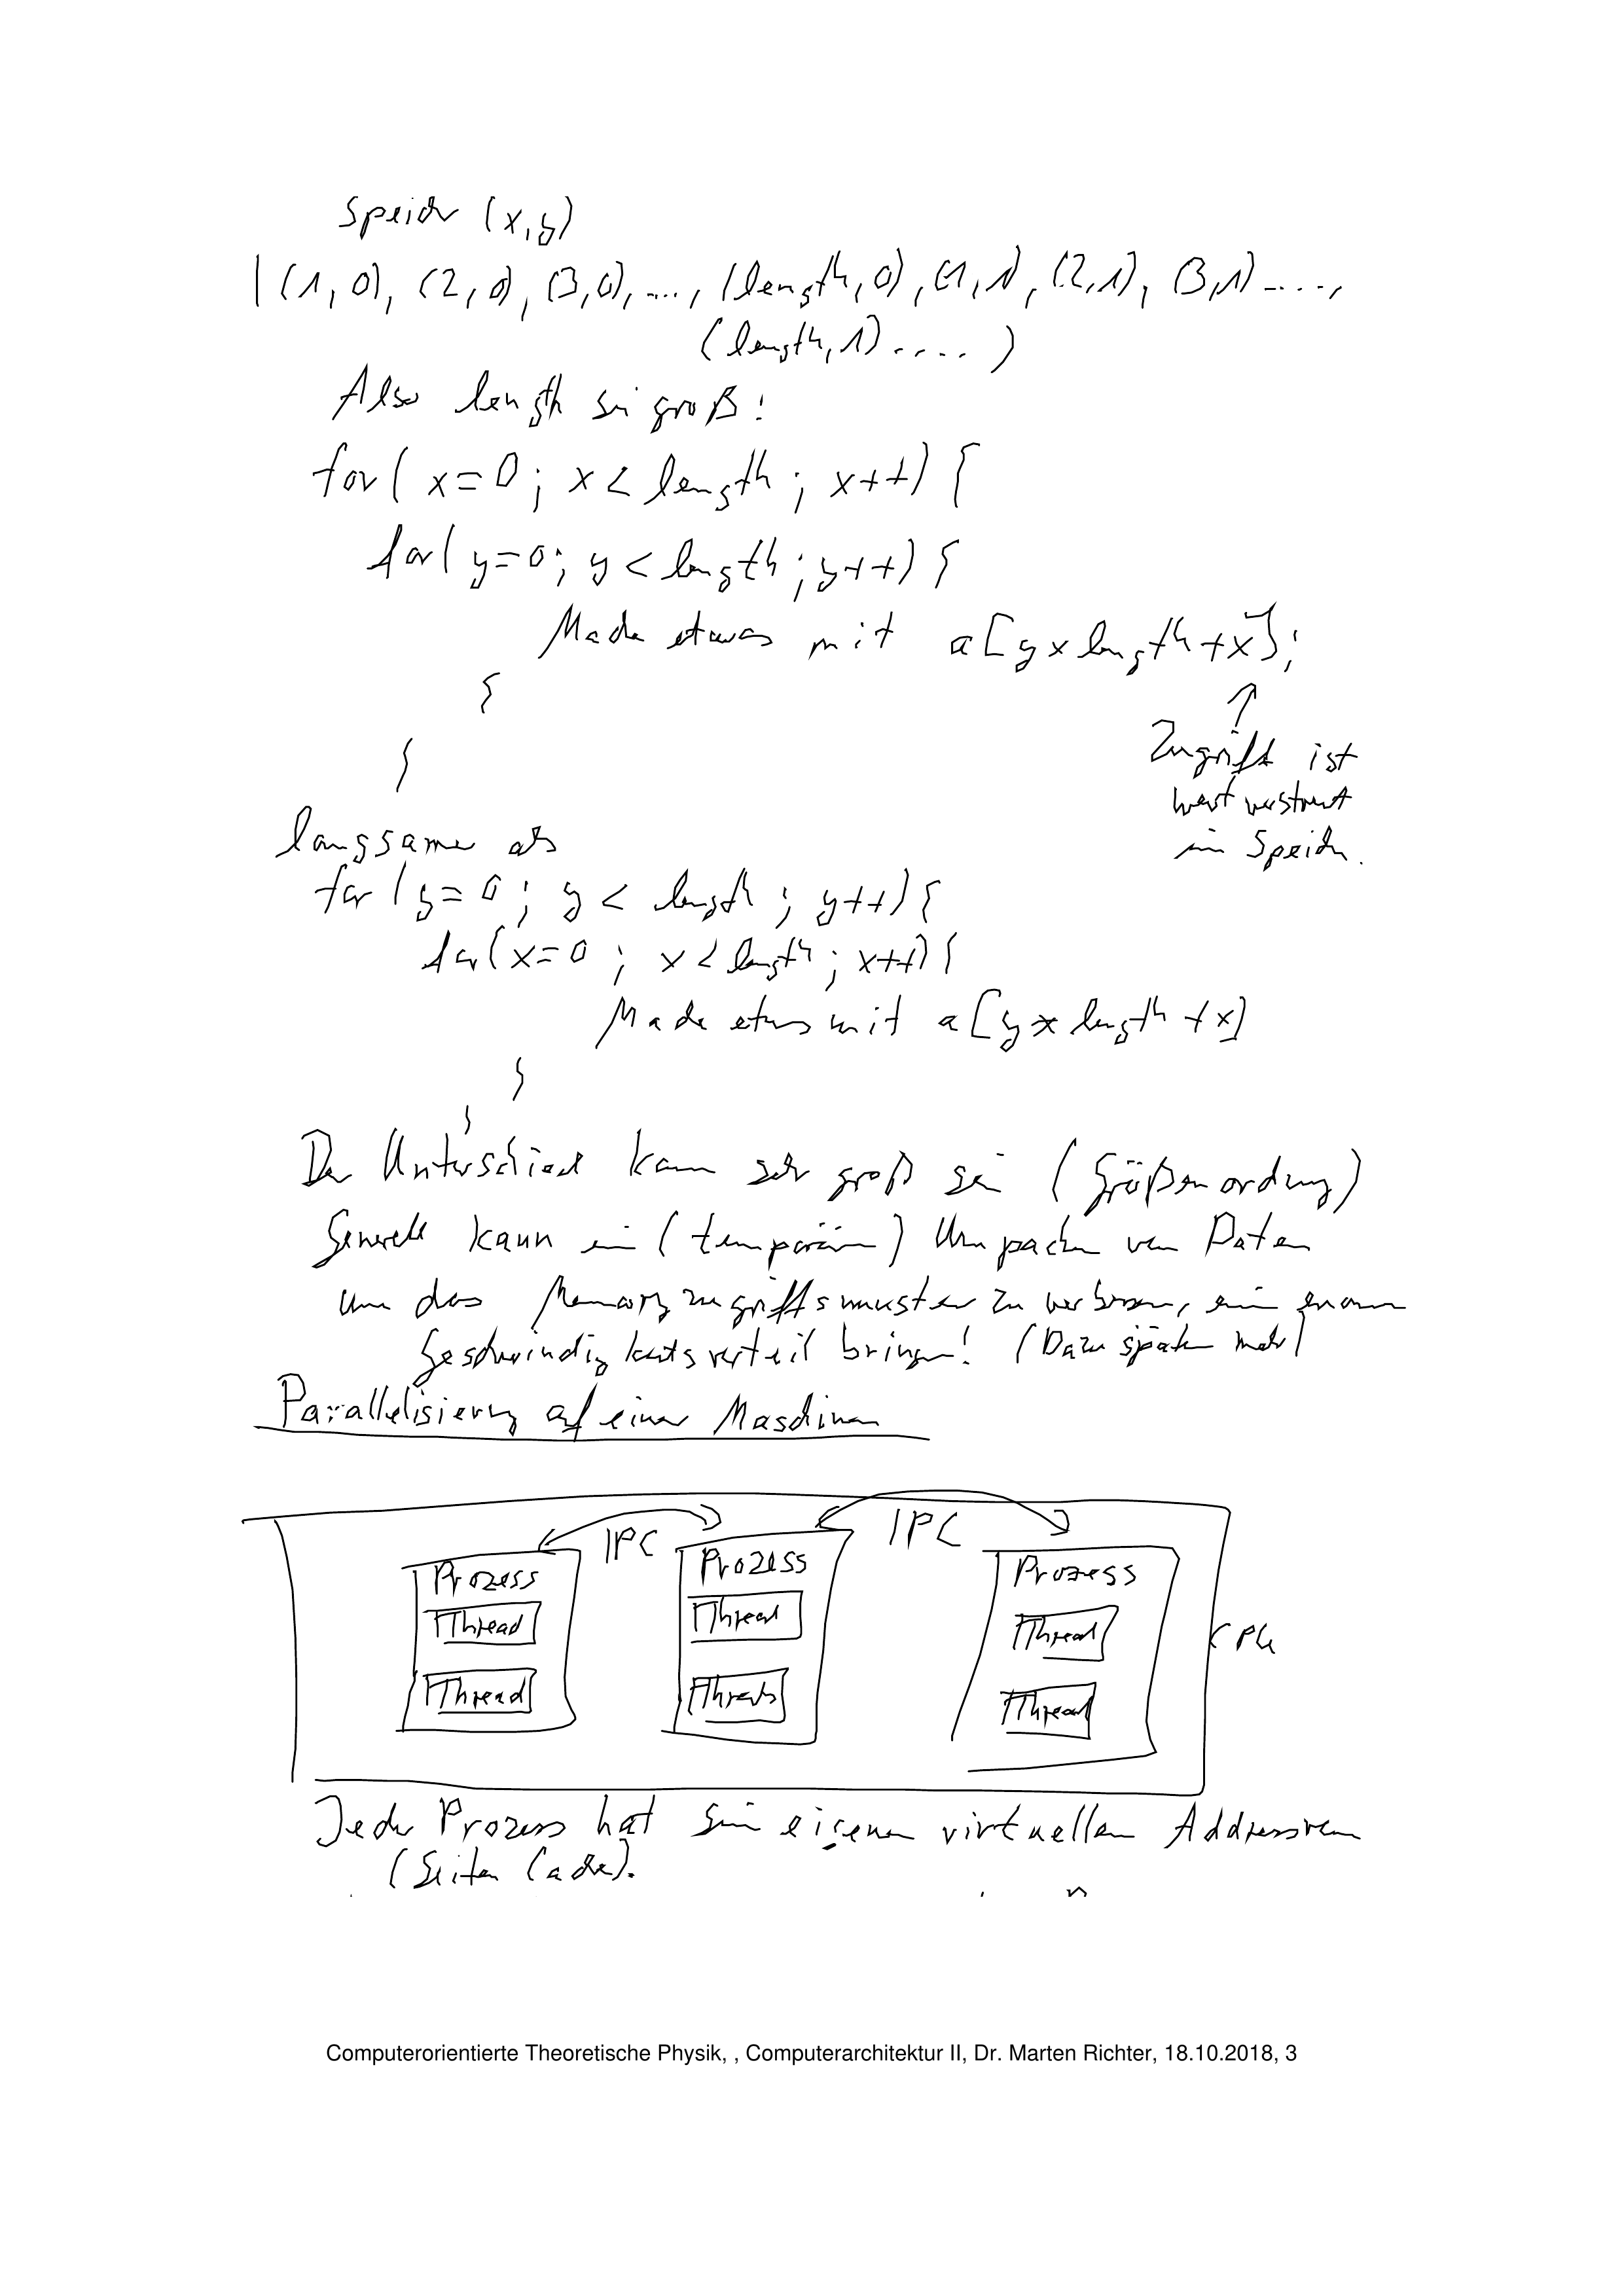 Speicher (x,y)
| (1,0), (2,0), (3,0),..., (length,0), (1,1), (2,1), (3,1)....,
(length,1).... )
Also length sei groß!
for( x=0; x < length; x++) {
for( y=0; y < length; y++) {
Mache etwas mit a[y*length+x];
}
}
Zugriff ist
weit verstreut
im Speicher.
langsamer als
for (y=0; y < length; y++) {
for(x=0; x < length; x++) {
Mache etwas mit a[y*length+x]
}
}
Der Unterschied kann sehr groß sein (Größenordnung)
Generell kann ein (temporäres) Umpacken von Daten
um das Memoryzugriffsmuster zu verbessern, einen enormen
Geschwindigkeitsvorteil bringen! (Dazu später mehr)
Parallelisierung auf einer Maschinen
IPC IPC
Prozess Prozess Prozess
Thread Thread Thread
CPU
Thread Threads Thread
Jeder Prozess hat seinen eigenen virtuellen Addressraum
(Seiten Cache).
Computerorientierte Theoretische Physik, , Computerarchitektur II, Dr. Marten Richter, 18.10.2018, 3